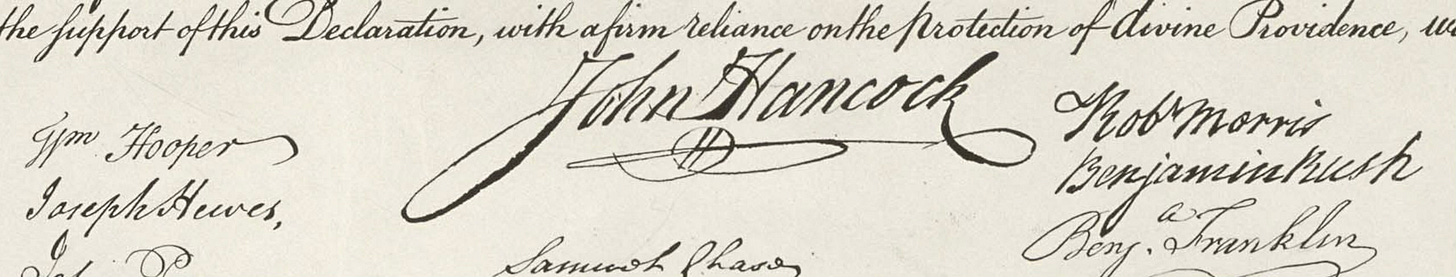 the support of this Declaration, with a firm reliance on the Protection of divine Providence, we
John Hancock
Wm Hooper
Joseph Hewes,
Samuel Chase
Robt Morris
Benjamin Rush
Benja. Franklin